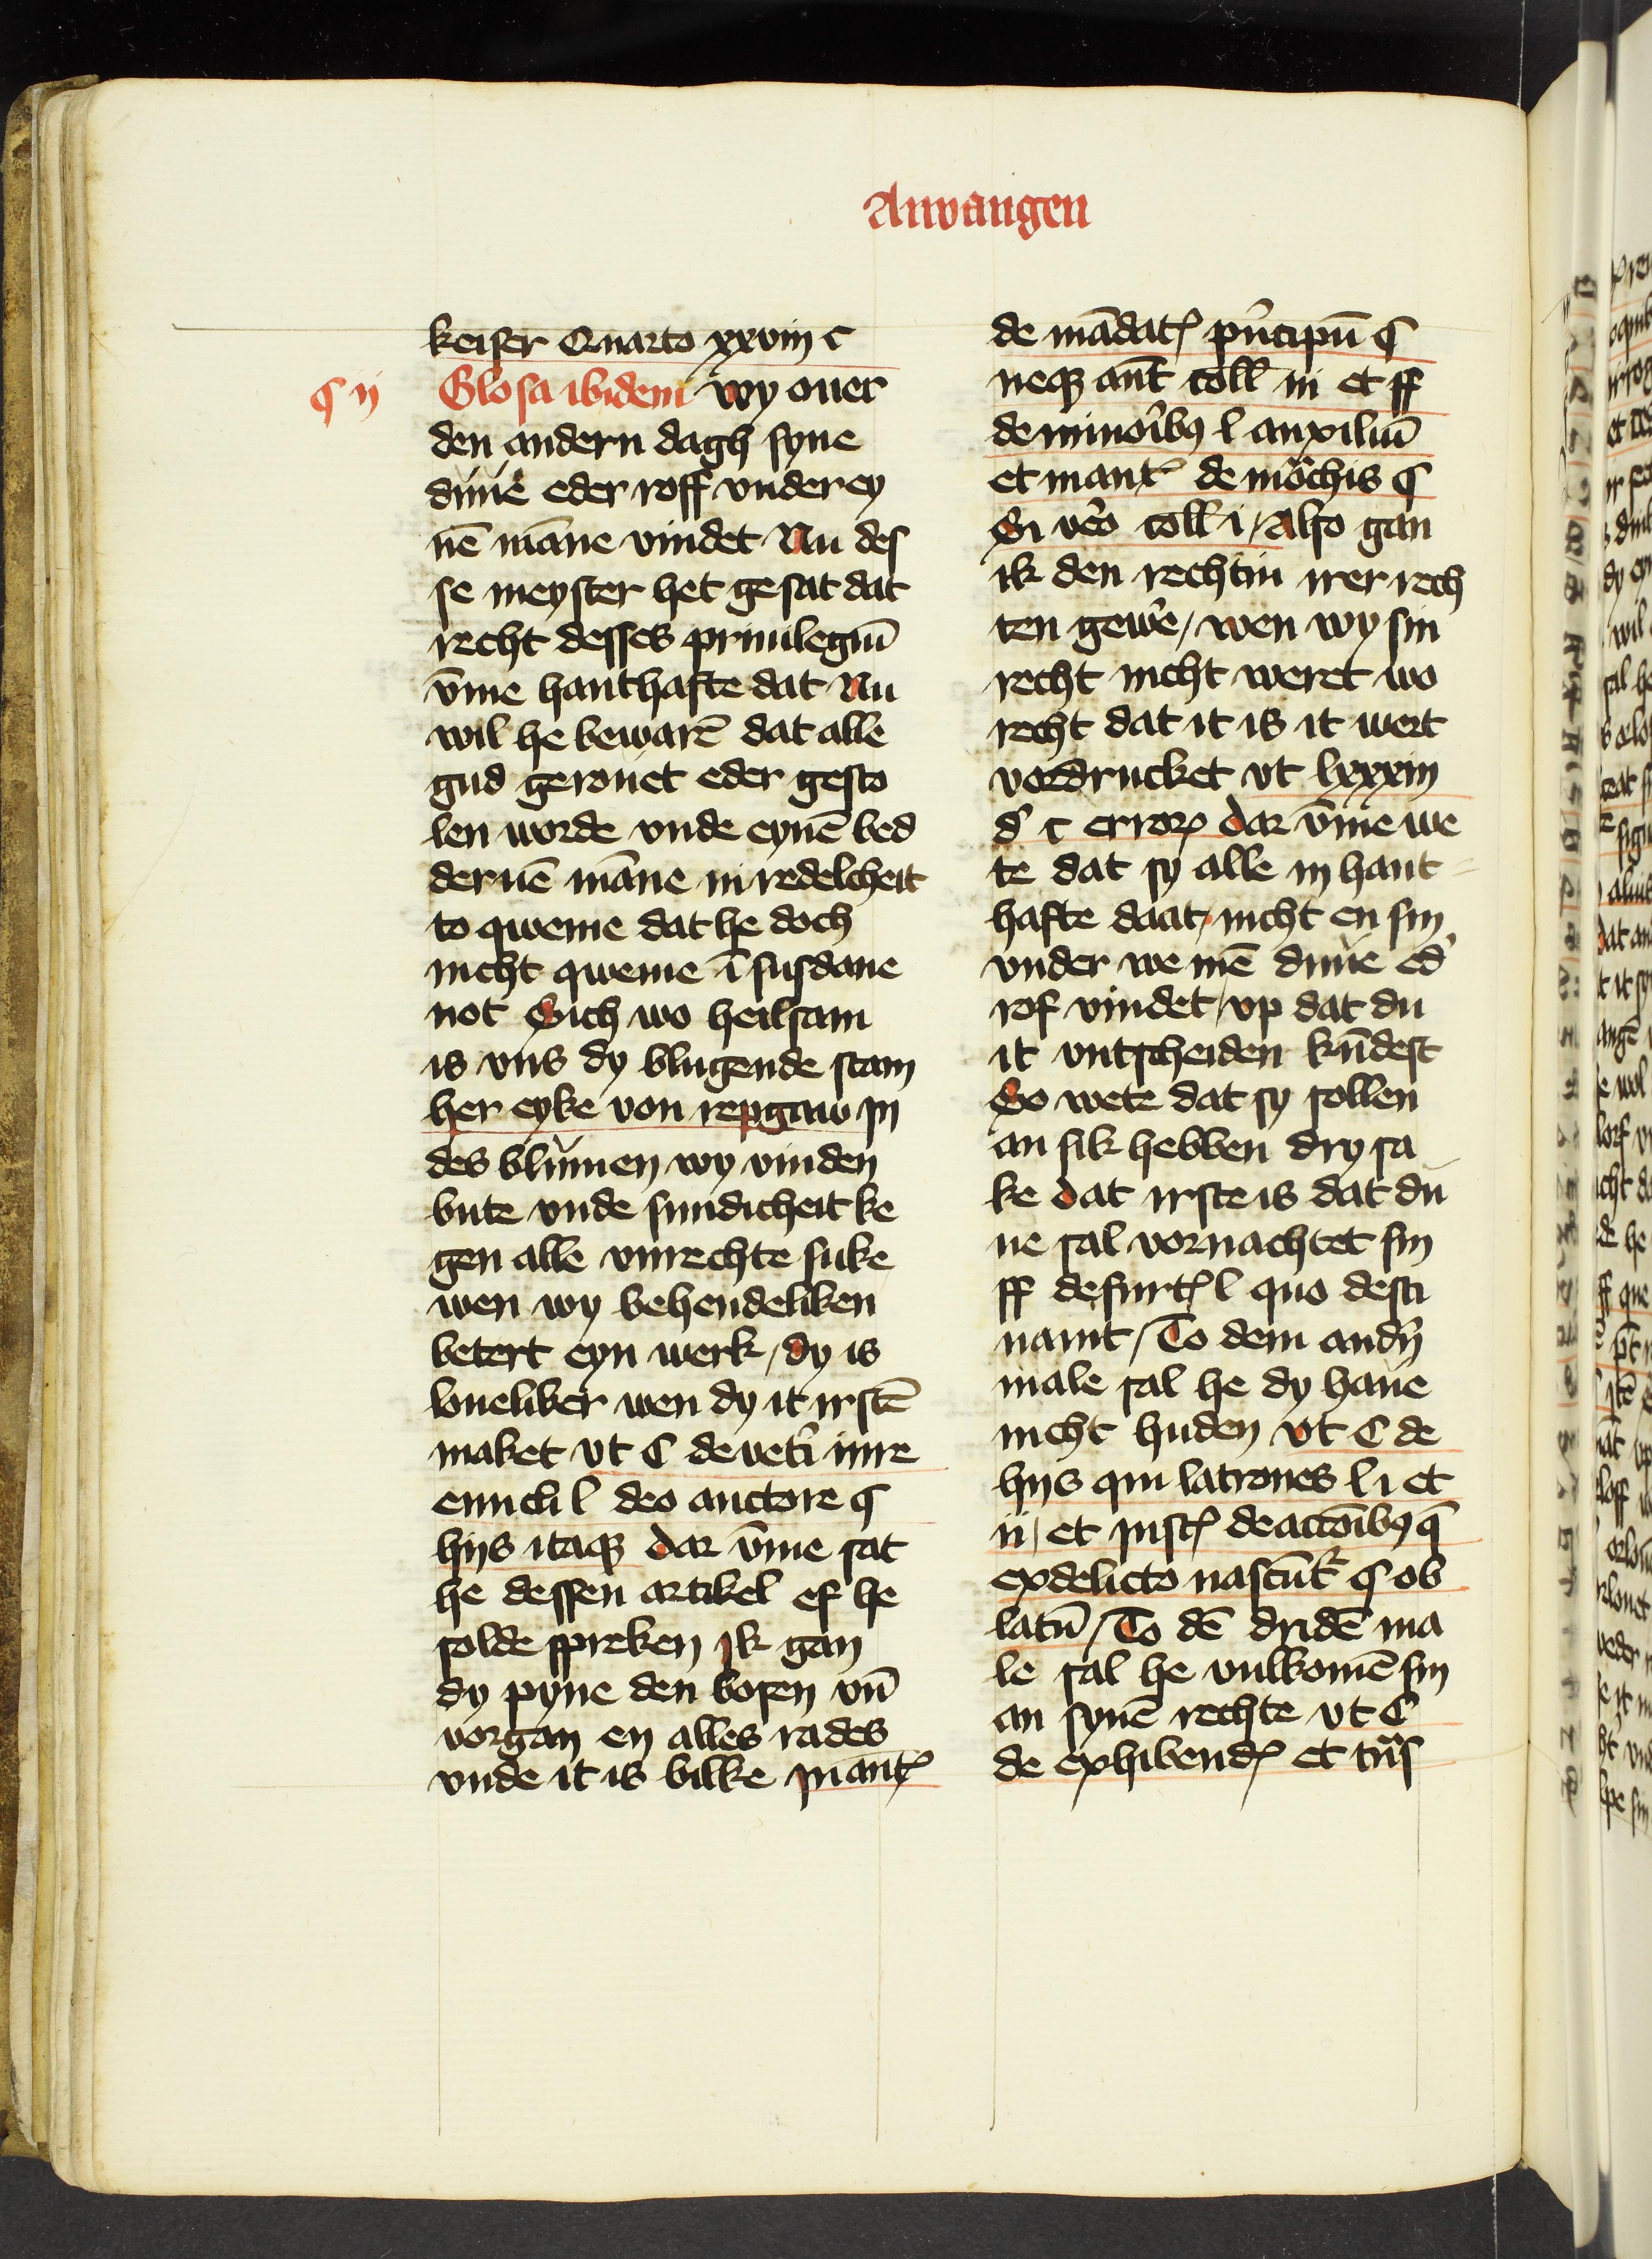 Anvangen
keiser Quarto xxviij c
§ ij Glosa ibidem wy ouer
den andern dagh syne
duue eder roff vnder ey
nē māne vindet Nu des
se meyster het gesat dat
recht desses priuilegiū
v̄me hanthafte dat Nu
wil he bewarē dat alle
gud gerouet eder gesto
len worde vnde eynē bed
deruē māne in redelcheit
to qweme dat he doch
nicht qweme ī susdane
not Sich wo heilsam
is vns dy blugende stam
her eyke von repgaw in
des blumen wy vinden
bute vnde sundicheit ke
gen alle vnrechte suke
wen wy behendeliken
betert eyn werk / dy is
loueliker wen dy it irstē
maket vt C de vetī iure
enucli l deo auctore §
hijs itaqꝫ dar v̄me sat
he dessen artikel ef he
solde spreken ik gan
dy pyne den bosen vn̄
vorgan en alles rades
vnde it is bilke in autꝭ
de mādatꝭ pͥncipū §
neqꝫ aut̄ coll iij et ff
de minoribꝫ l auxiliū
et in autꝭ de mōchis §
Si vͦo coll i / Also gan
ik den rechtin irer rech
ten gewͤe / wen wy sin
recht nicht weret wo
recht dat it is it wert
vordrucket vt lxxxiij
d' c erroꝝ dar v̄me we
te dat sy alle in hant
hafte daat / nicht en sin
vnder we mē duue ed'
rof vindet / vp dat du
it vntscheiden kūdest
So wete dat sy sollen
an sik hebben dry sa
ke dat irste is dat du
ne sal vornachtet sin
ff de furtꝭ l quo desti
nauit / To dem and'n
male sal he dy haue
nicht huden vt C de
hijs qui latrones l i et
ii / et instꝭ de actōibꝫ q̄
ex delicto nascūt' § ob
latū / To dē dridē ma
le sal he vulkomē sin
an synē rechte vt C
de exhibendꝭ et trās